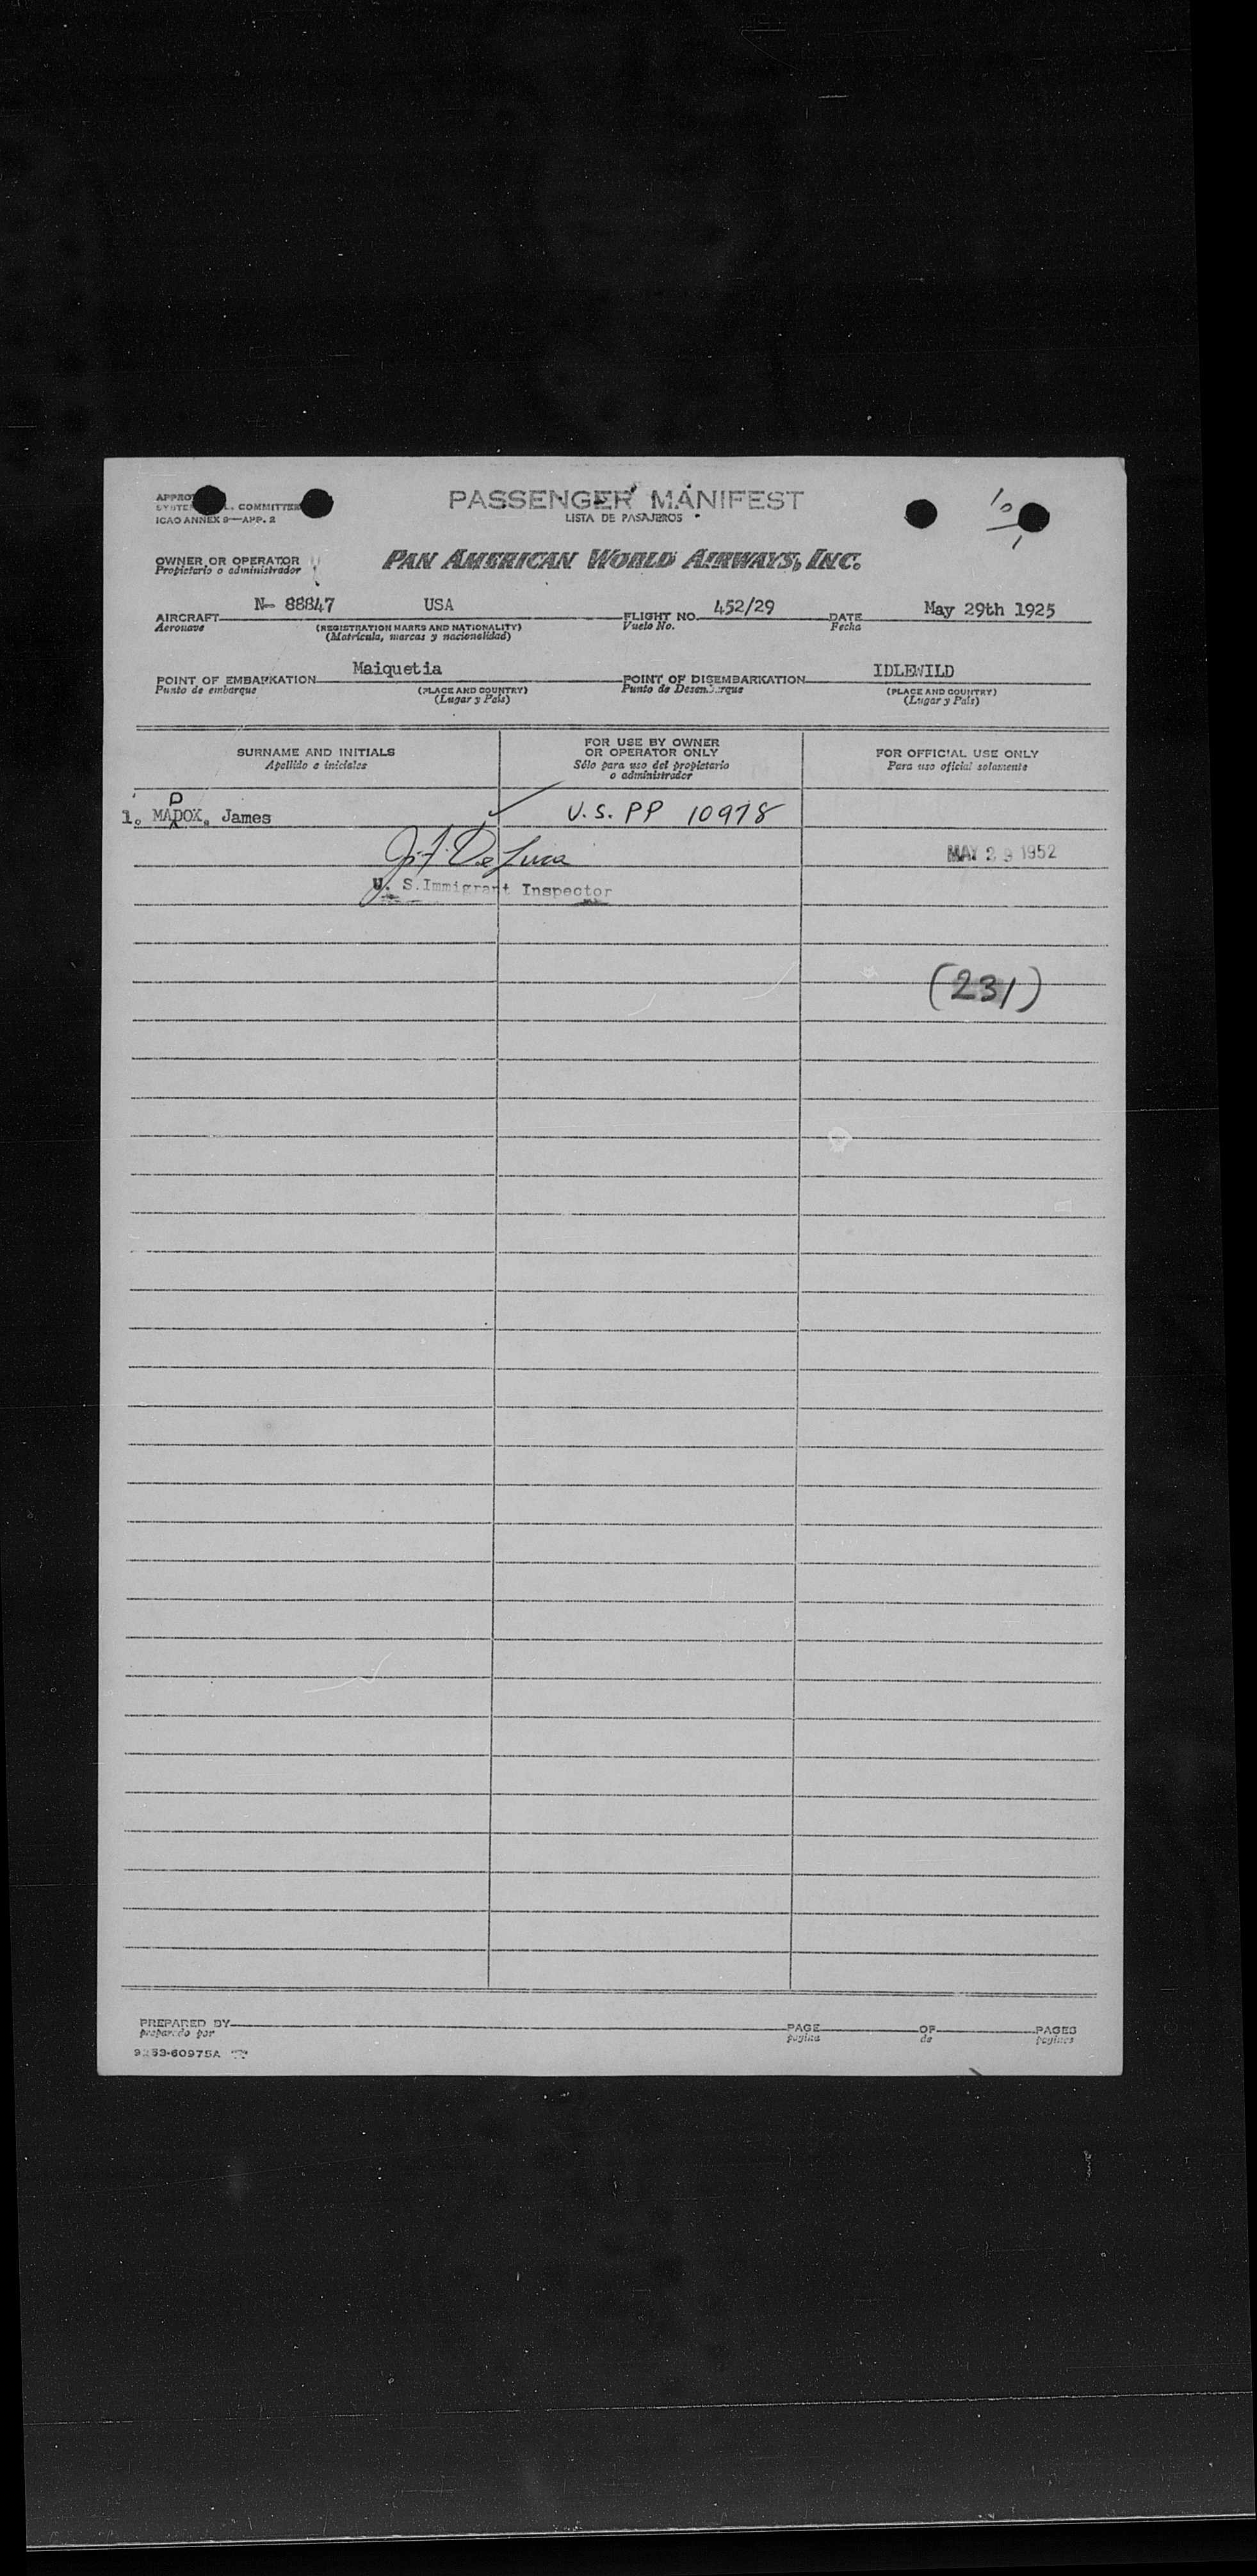 PASSENGER MANIFEST
LISTA DE PASAJEROS
COMMITTEE
ICAO ANNEX 9—APP. 2
10
1
OWNER OR OPERATOR
Propietario o administrador
PAN AMERICAN WORLD AIRWAYS, INC.
AIRCRAFT N- 88847 USA FLIGHT NO. 452/29 DATE May 29th 1925
Aeronave (REGISTRATION MARKS AND NATIONALITY) Vuelo No. Fecha
(Matrícula, marcas y nacionalidad)
POINT OF EMBARKATION Maiquetia POINT OF DISEMBARKATION IDLEWILD
Punto de embarque (PLACE AND COUNTRY) Punto de Desembarque (PLACE AND COUNTRY)
(Lugar y País) (Lugar y País)
SURNAME AND INITIALS
Apellido e iniciales
FOR USE BY OWNER
OR OPERATOR ONLY
Sólo para uso del propietario
o administrador
FOR OFFICIAL USE ONLY
Para uso oficial solamente
D
1. MADOX, James ✓ U.S. PP 10978
De Luca MAY 29 1952
U. S. Immigrant Inspector
(231)
PREPARED BY PAGE OF PAGES
preparado por pagina de paginas
9253-60975A